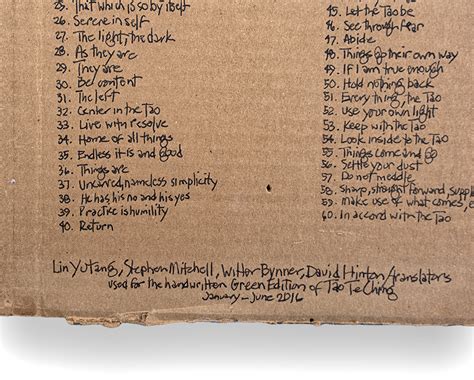 25. That which is so by itself
26. Serene in self
27. The light, the dark
28. As they are
29. They are
30. Be content
31. The left
32. Center in the Tao
33. Live with resolve
34. Home of all things
35. Endless it is and good
36. Things are
37. Uncarved, nameless simplicity
38. He has his no and his yes
39. Practice is humility
40. Return
45. Let the Tao be
46. See through fear
47. Abide
48. Things go their own way
49. If I am true enough
50. Hold nothing back
51. Every thing, the Tao
52. Use your own light
53. Keep with the Tao
54. Look inside to the Tao
55. Things come and go
56. Settle your dust
57. Do not meddle
58. Sharp, straight forward, supple
59. Make use of what comes,
60. In accord with the Tao
Lin Yutang, Stephen Mitchell, Witter Bynner, David Hinton translators
used for the handwritten Green Edition of Tao Te Ching
January – June 2016